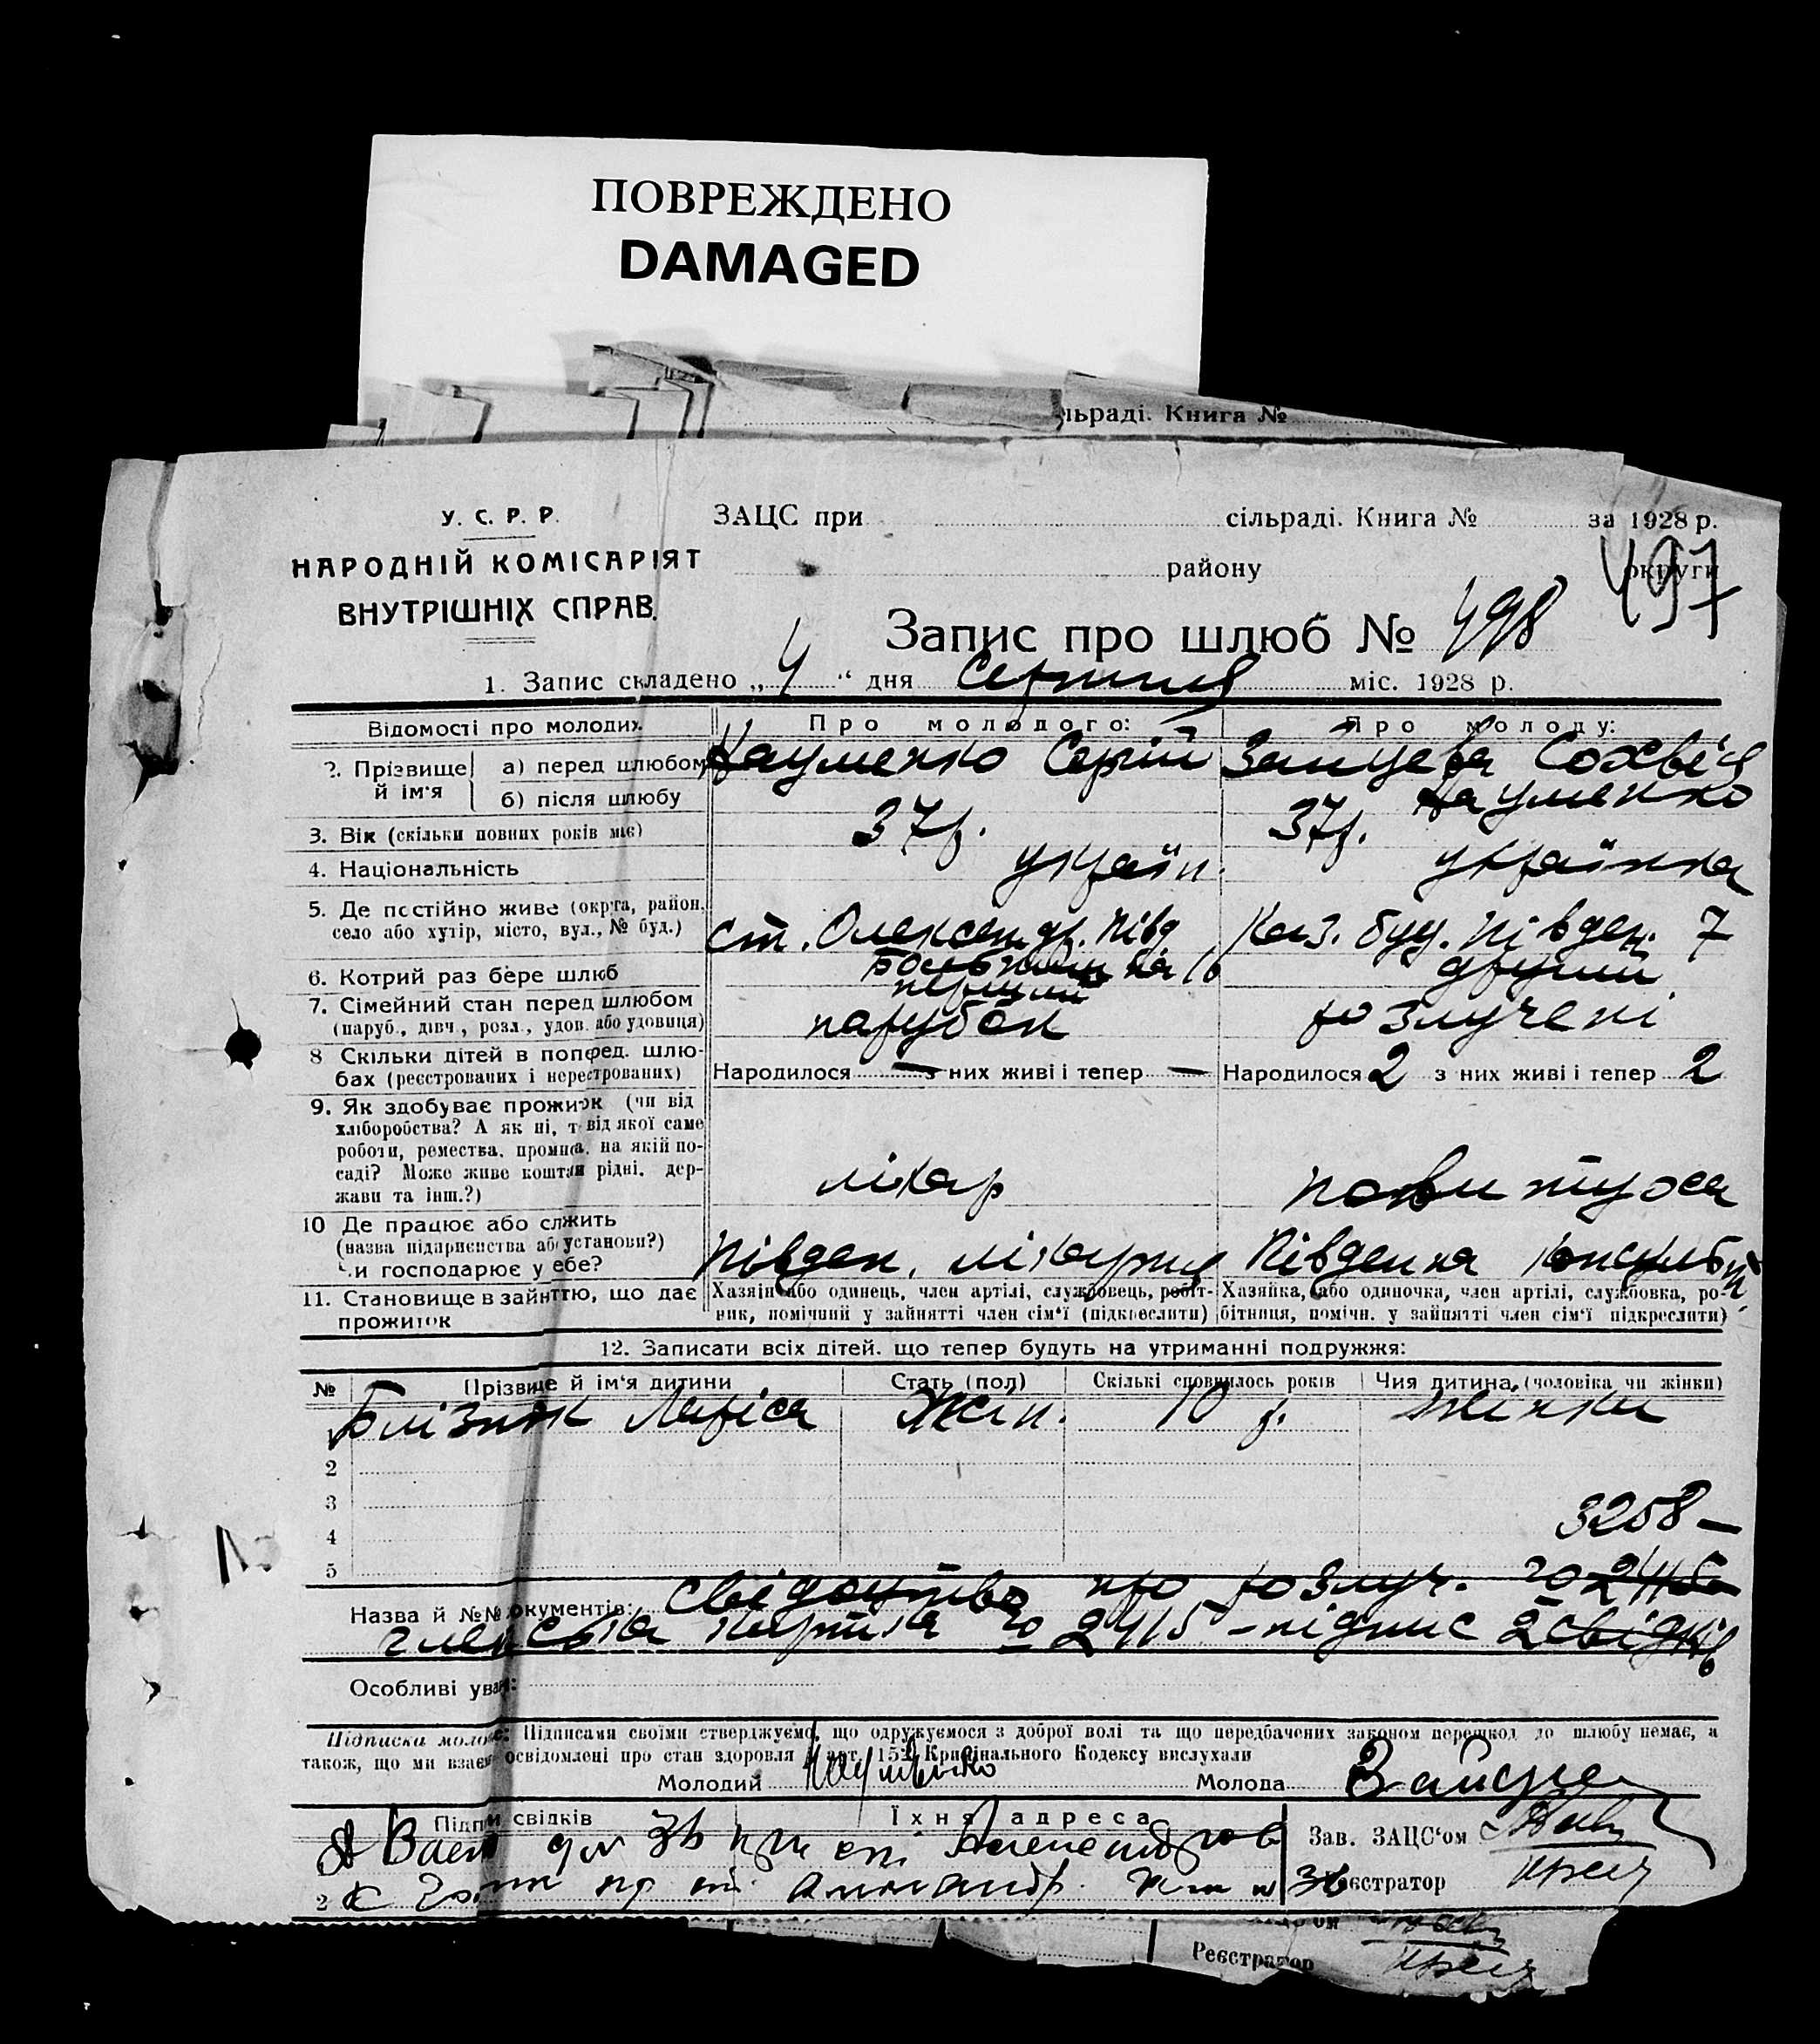 ПОВРЕЖДЕНО
DAMAGED
льраді. Книга №
У. С. Р. Р.
НАРОДНІЙ КОМІСАРІЯТ
ВНУТРІШНІХ СПРАВ.
ЗАЦС при сільраді. Книга № за 1928 р.
району округи
497
Запис про шлюб № 498
1. Запис складено „ 4 “ дня Серпня міс. 1928 р.
Відомості про молодих Про молодого: Про молоду:
2. Прізвище й ім'я а) перед шлюбом Науменко Сергій Зайцева Софія
б) після шлюбу Науменко
3. Вік (скільки повних років має) 37 р. 37 р.
4. Національність україн. українка
5. Де постійно живе (округа, район, село або хутір, місто, вул., № буд.) ст. Олександр. Півд. Каз. буд. Півден. 7
6. Котрий раз бере шлюб перший другий
7. Сімейний стан перед шлюбом (паруб., дівч., розл., удов. або удовиця) парубок розлучені
8 Скільки дітей в поперед. шлюбах (реєстрованих і нереєстрованих) Народилося — з них живі і тепер — Народилося 2 з них живі і тепер 2
9. Як здобуває прожиток (чи від
хліборобства? А як ні, т від якої саме
роботи, ремества, промисла, на якій по-
саді? Може живе коштам рідні, дер-
жави та інш.?) лікар
10 Де працює або служить
(назва підприємства або установи?)
чи господарює у себе? Півден. лікарня Південна консульт.
11. Становище в зайняттю, що дає прожиток
Хазяїн або одинець, член артілі, службовець, робіт-
ник, помічний у зайнятті член сім'ї (підкреслити)
Хазяйка, або одиночка, член артілі, службовка, ро-
бітниця, помічн. у зайнятті член сім'ї підкреслити)
12. Записати всіх дітей, що тепер будуть на утриманні подружжя:
№ Прізвище й ім'я дитини Стать (пол) Скількі сповнилось років Чия дитина (чоловіка чи жінки)
Близнюк Лариса Жін. 10 р. жінки
2
3
4
5
3258 —
Назва й №№ документів: свідоцтво про розлуч. № 2415
членська картка № 2415 – підпис 2 свідків
Особливі уваги:
Підписка молодих: Підписами своїми стверджуємо, що одружуємося з доброї волі та що передбачених законом перешкод до шлюбу немає, а
також, що ми взаємно освідомлені про стан здоровля арт. 15 Кримінального Кодексу вислухали
Молодий Науменко Молода Зайцева
Підписи свідків Їхня адреса Зав. ЗАЦС'ом
2 Реєстратор
Реєстратор